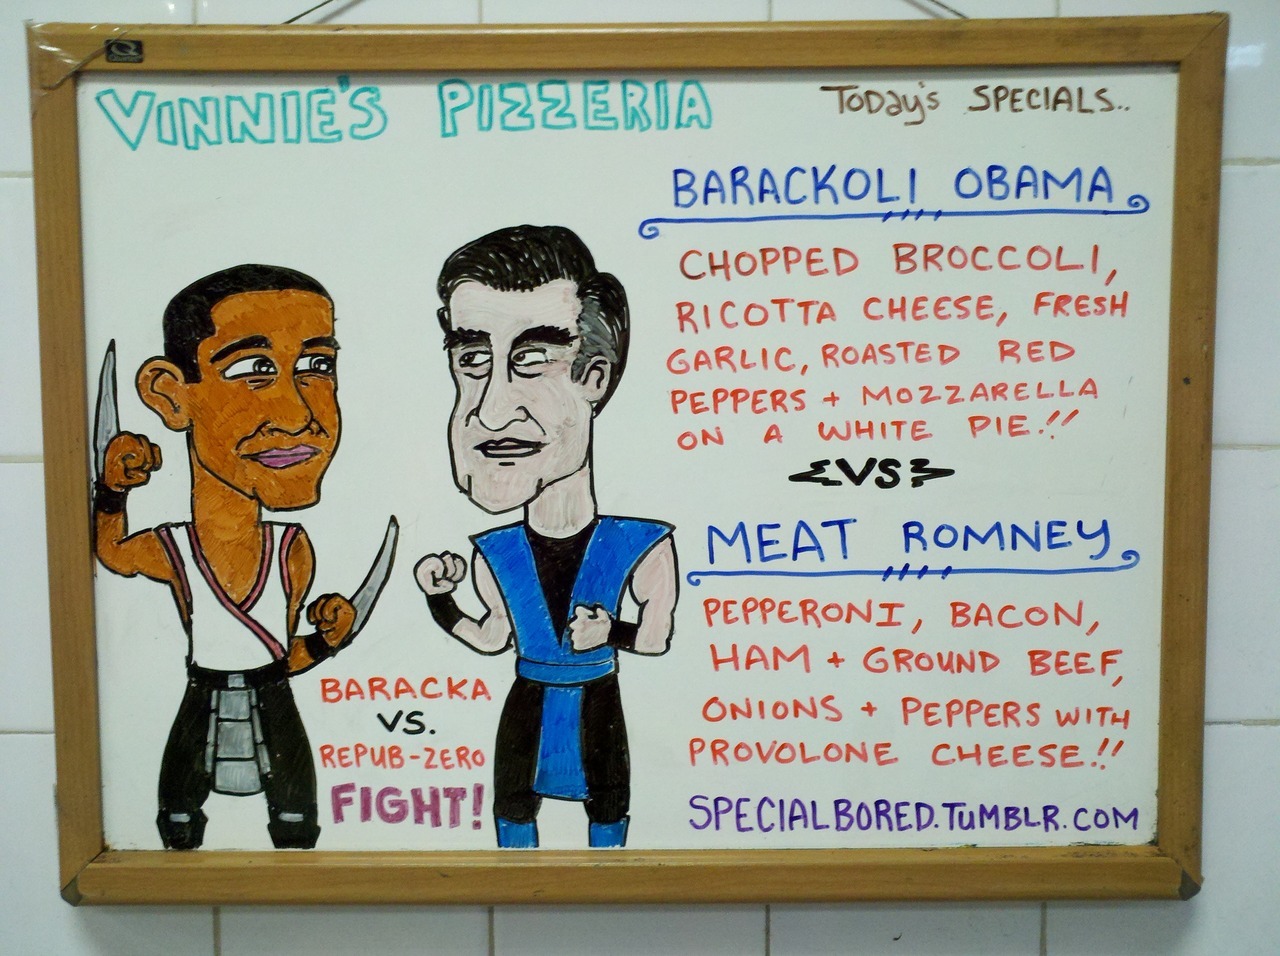 VINNIE'S PIZZERIA
TODAY'S SPECIALS..
BARACKOLI OBAMA
CHOPPED BROCCOLI,
RICOTTA CHEESE, FRESH
GARLIC, ROASTED RED
PEPPERS + MOZZARELLA
ON A WHITE PIE.!!
VS
MEAT ROMNEY
PEPPERONI, BACON,
HAM + GROUND BEEF,
ONIONS + PEPPERS WITH
PROVOLONE CHEESE.!!
SPECIALBORED.TUMBLR.COM
BARACKA
VS.
REPUB-ZERO
FIGHT!